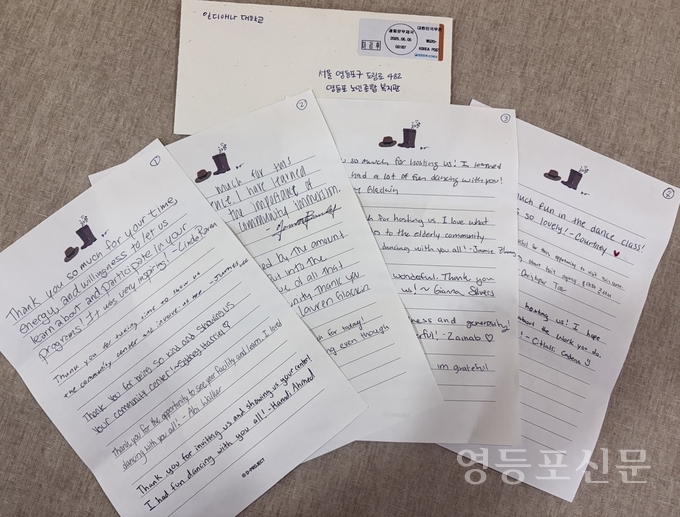 인디애나 대학교
영등포우체국
2025. 06. 05
대한민국우표
KOREA POST
서울 영등포구 도림로 482
영등포 노인종합복지관
①
Thank you so much for your time,
energy, and willingness to let us
learn about and participate in your
programs! It was very inspiring! - Linda
Thank you for taking time to show us
the community center and
Thank you for being so kind and showing us
your community center! - Sydney
Thank you for the opportunity to see your facility and learn. I loved
dancing with you all! - Abi Walker
Thank you for inviting us and showing us your center!
I had fun dancing with you all! - Hamdi Ahmed
D.PROJECT
②
much for this
I have learned
the importance of
community
by the amount
put into the
of all that
Thank you
Lauren
for today!
even though
③
so much for hosting us! I learned
had a lot of fun dancing with you!
for hosting us. I love what
to the elderly community
dancing with you all! - Jamie Zhang
wonderful. Thank you
us! ~ Gianna
ness and generosity!
! - Zainab ♡
im grateful
②
much fun in the dance class!
so lovely! - Courtney ♥
for this opportunity to visit
hosting us! I hope
about the work you do.
- Citlalli
영등포신문